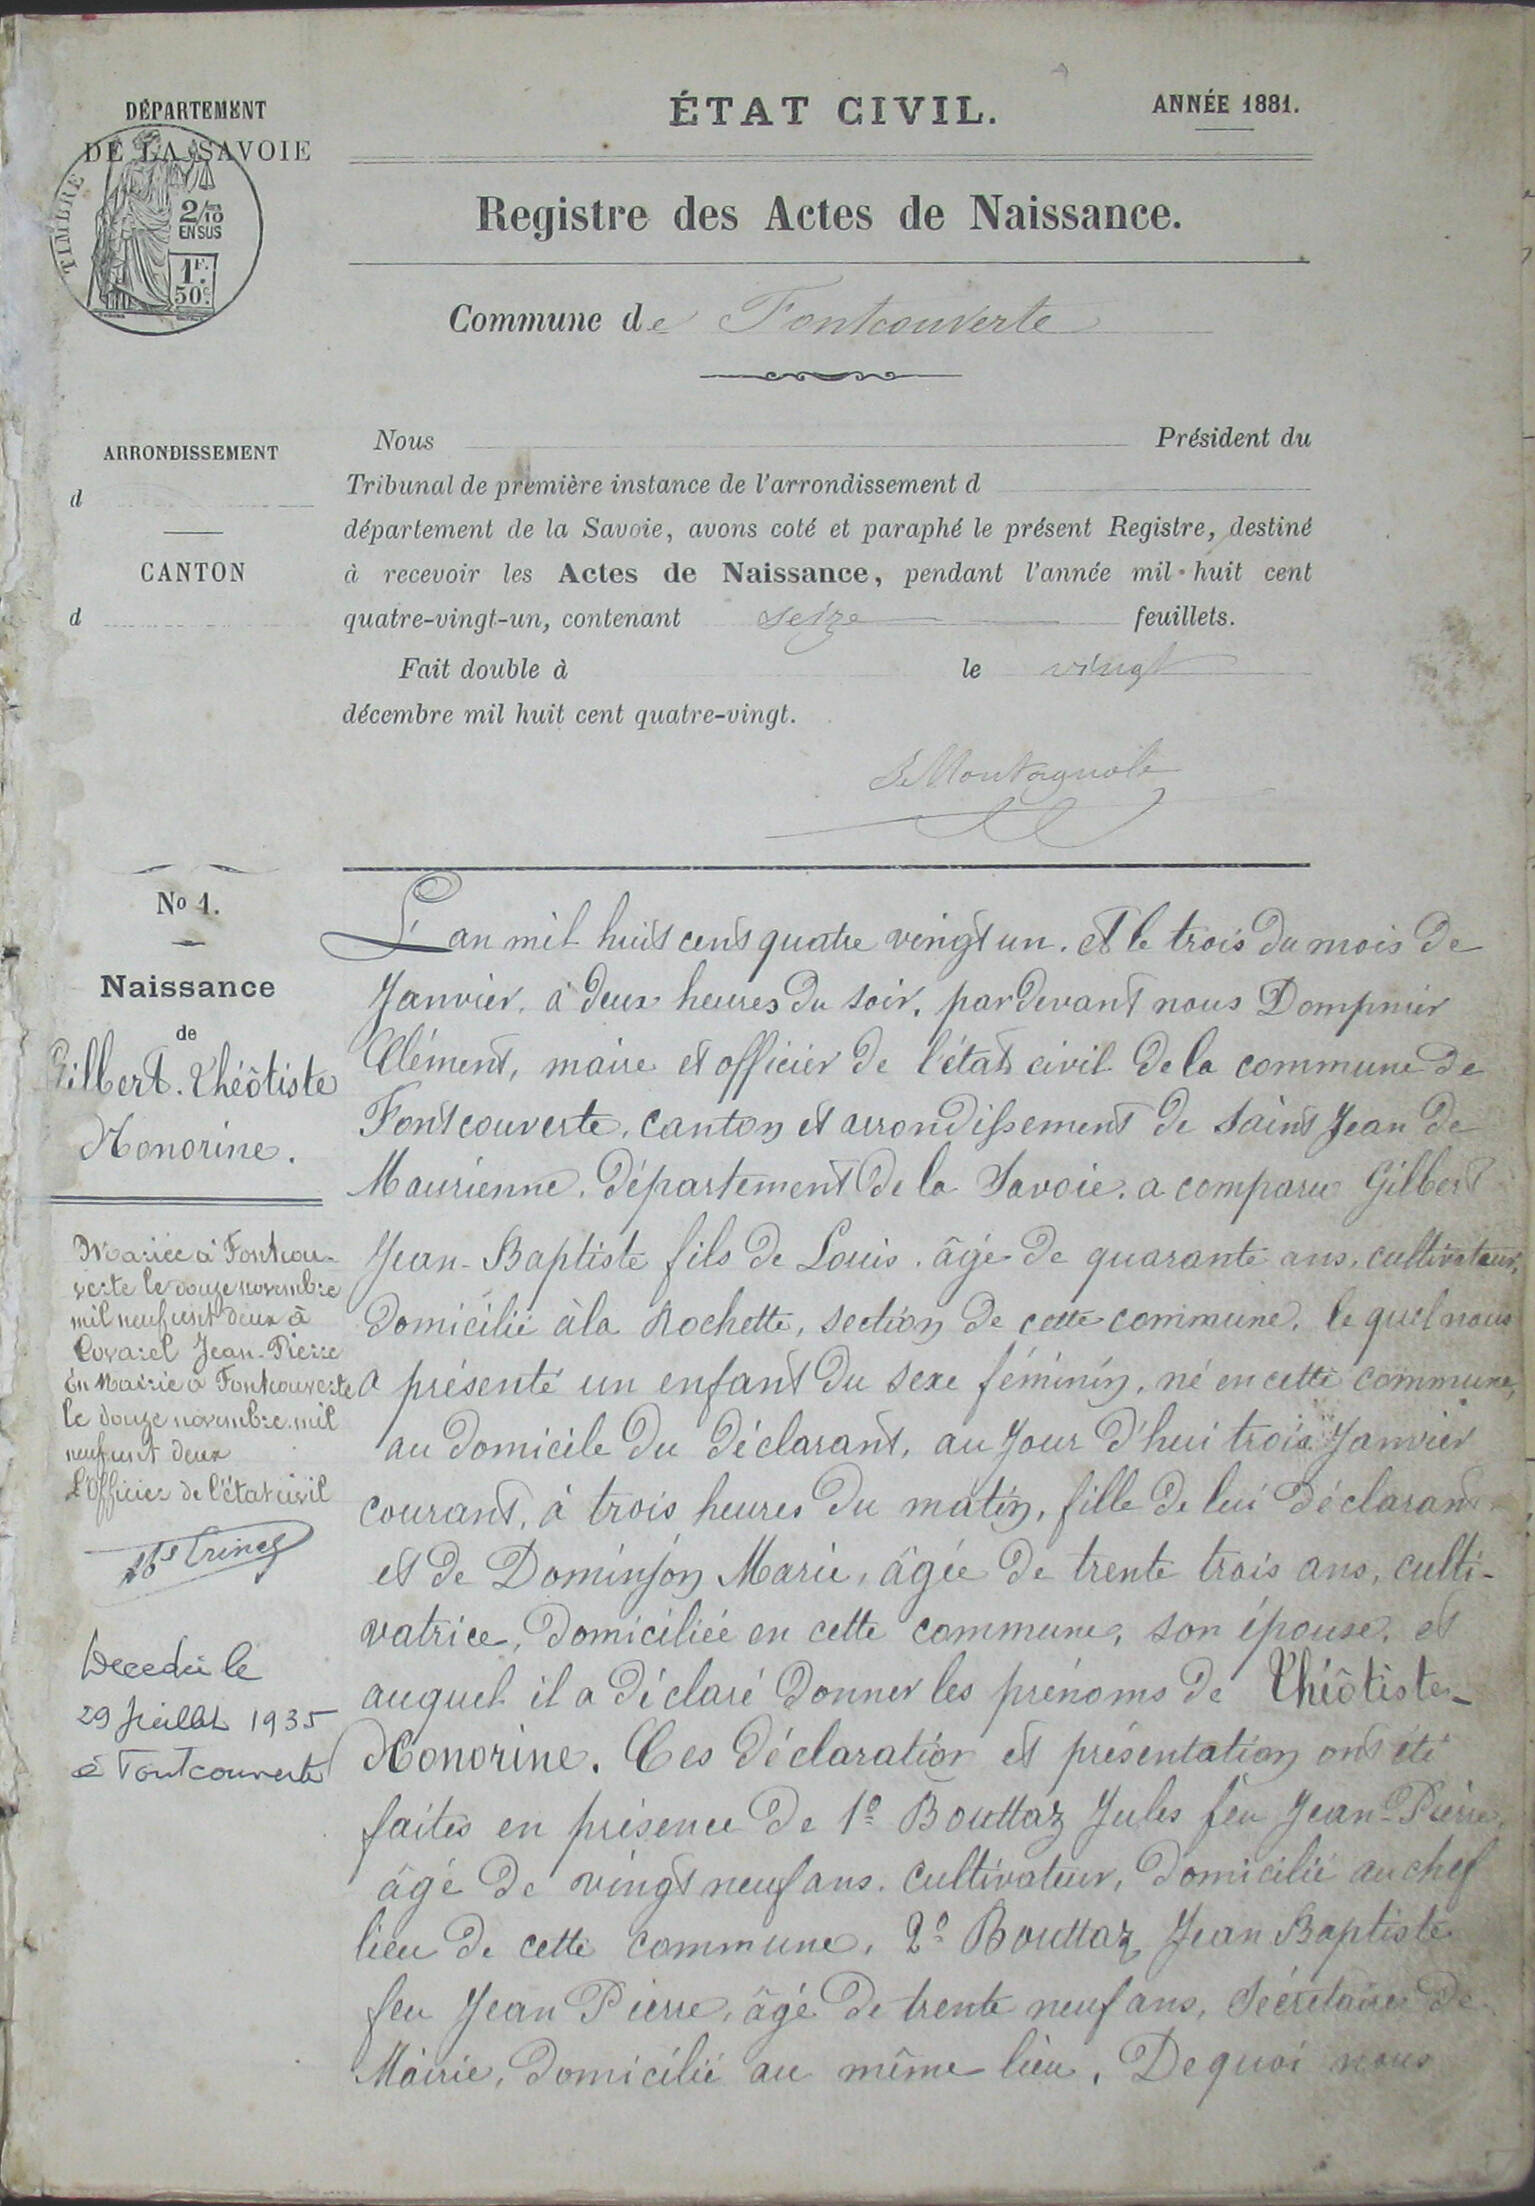 DÉPARTEMENT
DE LA SAVOIE
TIMBRE
2/10
EN SUS
1F.
50c.
ÉTAT CIVIL.
ANNÉE 1881.
Registre des Actes de Naissance.
Commune de Fontcouverte
ARRONDISSEMENT
d
CANTON
d
Nous Président du
Tribunal de première instance de l'arrondissement d
département de la Savoie, avons coté et paraphé le présent Registre, destiné
à recevoir les Actes de Naissance, pendant l'année mil huit cent
quatre-vingt-un, contenant seize feuillets.
Fait double à le vingt
décembre mil huit cent quatre-vingt.
No 1.
Naissance
de
Gilbert. Théôtiste
Honorine.
Mariée à Fontcou-
verte le douze novembre
mil neuf cent deux à
Covarel Jean-Pierre
En Mairie à Fontcouverte
le douze novembre mil
neuf cent deux
L'Officier de l'état civil
Decedée le
29 Juillet 1935
à Fontcouverte
L'an mil huit cent quatre vingt un. et le trois du mois de
Janvier, à deux heures du soir, par devant nous Dompnier
Clément, maire et officier de l'état civil de la commune de
Fontcouverte, canton et arrondissement de Saint Jean de
Maurienne, département de la Savoie. a comparu Gilbert
Jean-Baptiste fils de Louis, âgé de quarante ans, cultivateur,
domicilié à la Rochette, section de cette commune, le quel nous
a présenté un enfant du sexe féminin, né en cette commune,
au domicile du déclarant, au jour d'hui trois Janvier
courant, à trois heures du matin, fille de lui déclarant
et de Dominjon Marie, âgée de trente trois ans, culti-
vatrice, domiciliée en cette commune, son épouse, et
auquel il a déclaré donner les prénoms de Théôtiste-
Honorine. Ces déclaration et présentation ont été
faites en présence de 1o Bouttaz Jules feu Jean-Pierre,
âgé de vingt neuf ans. cultivateur, domicilié au chef
lieu de cette commune, 2o Bouttaz Jean Baptiste
feu Jean Pierre, âgé de trente neuf ans, Sécretaire de
Mairie, domicilié au même lieu. De quoi nous